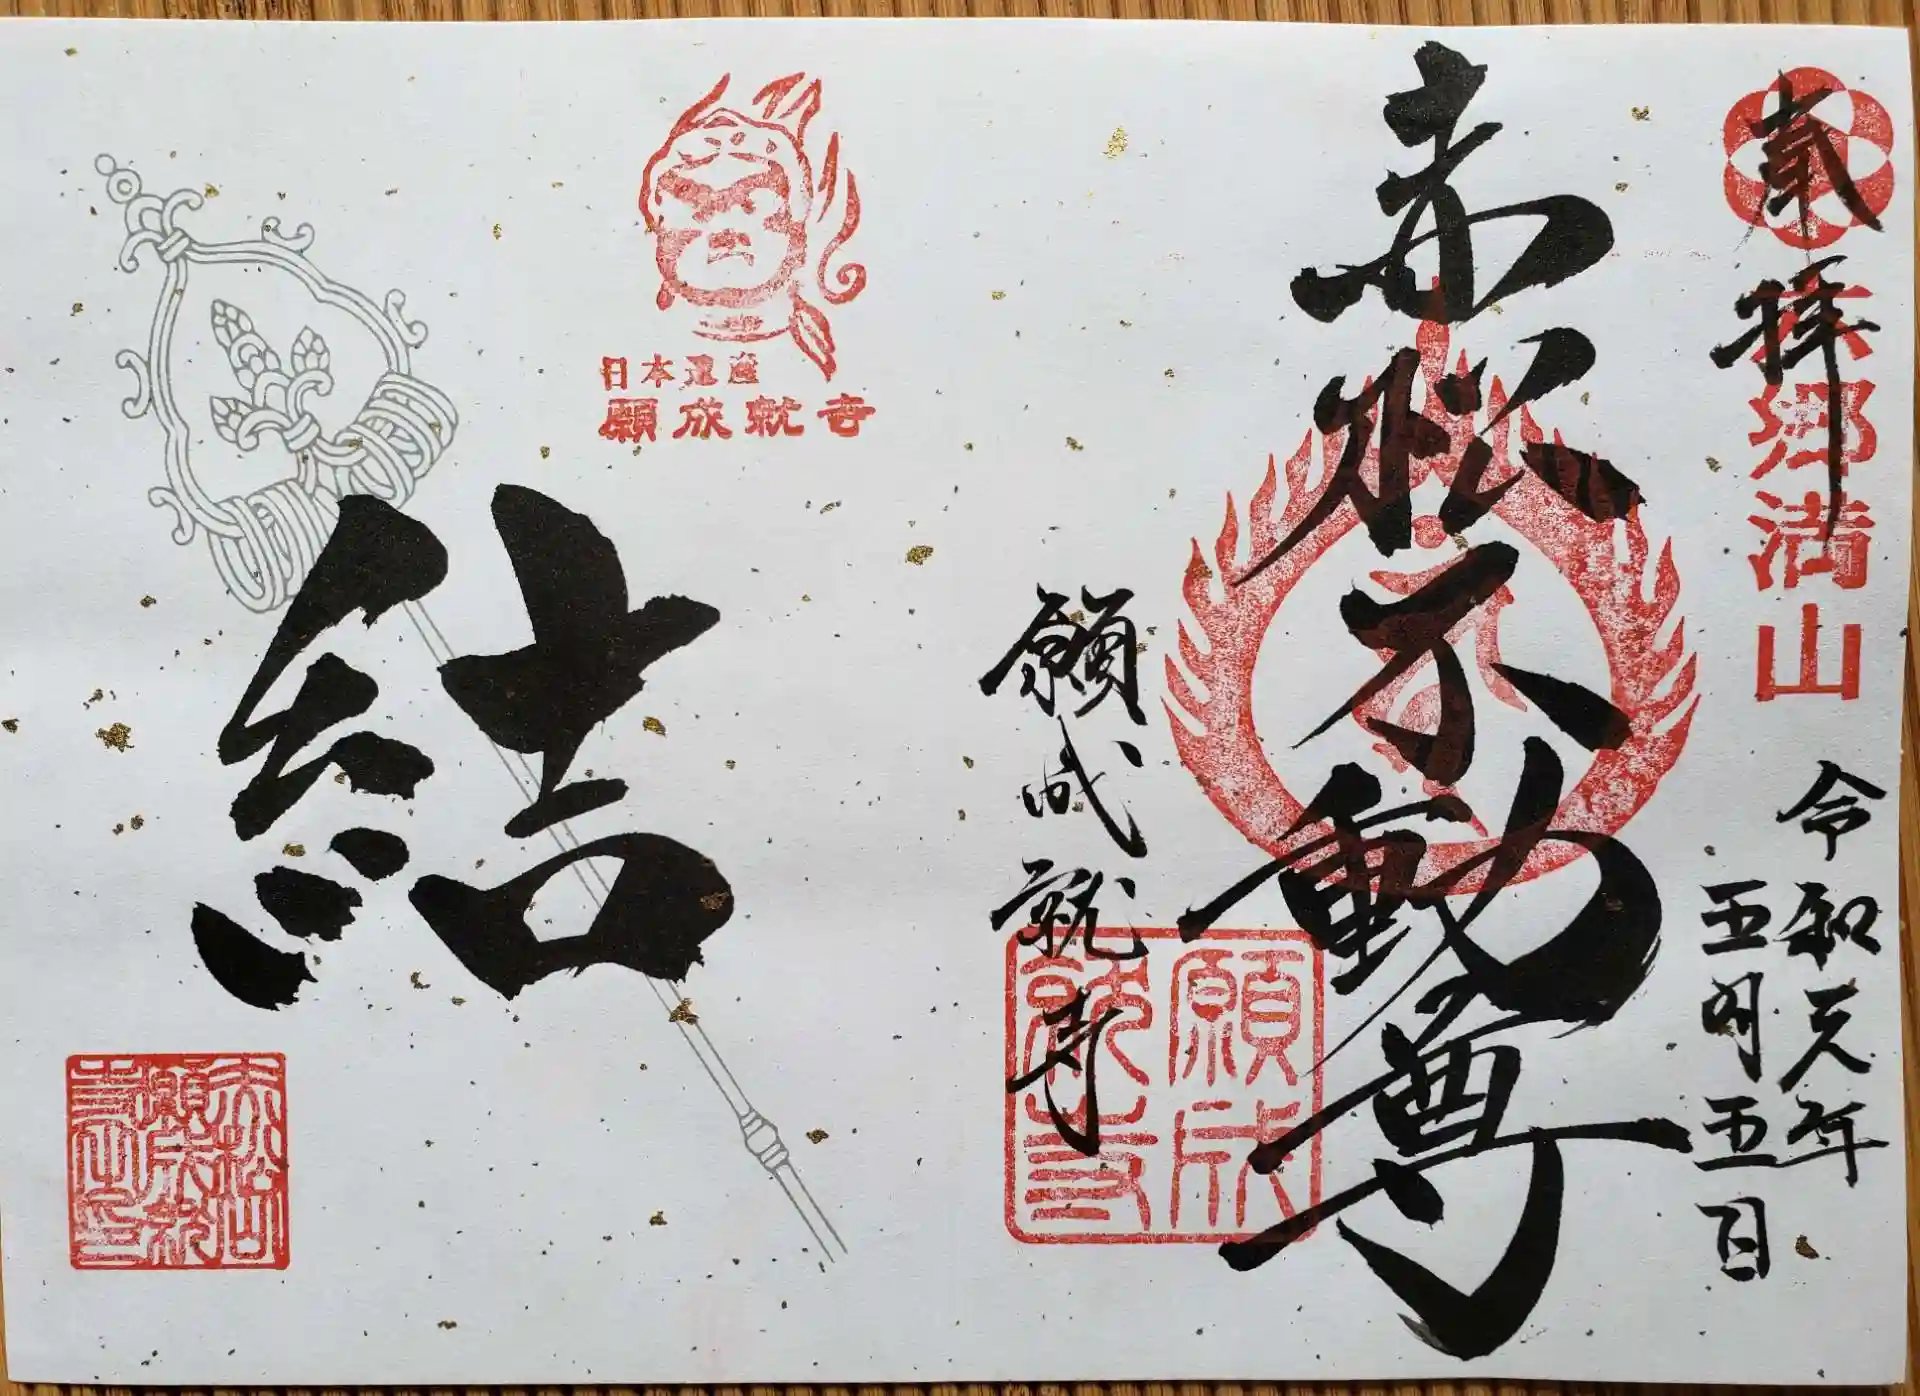 奉拝
六郷満山
令和元年
五月五日
赤松不動尊
願成就寺
願成就寺
日本遺産
願成就寺
結
赤松山
願成就
寺之印